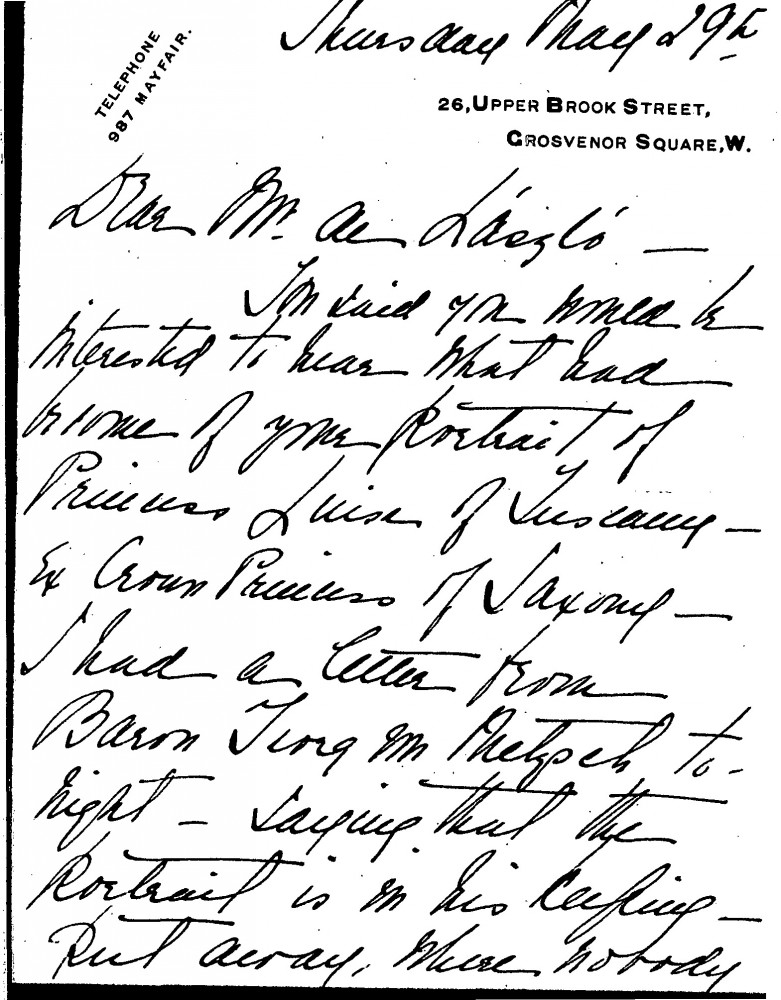 Thursday May 29th
TELEPHONE
987 MAYFAIR.
26, UPPER BROOK STREET,
GROSVENOR SQUARE, W.
Dear Mr. de László —
You said you would be
interested to hear what had
become of your Portrait of
Princess Luise of Tuscany —
Ex Crown Princess of Saxony —
I had a letter from
Baron Georg von Metzsch to-
night — saying that the
Portrait is in his keeping —
Put away, where nobody